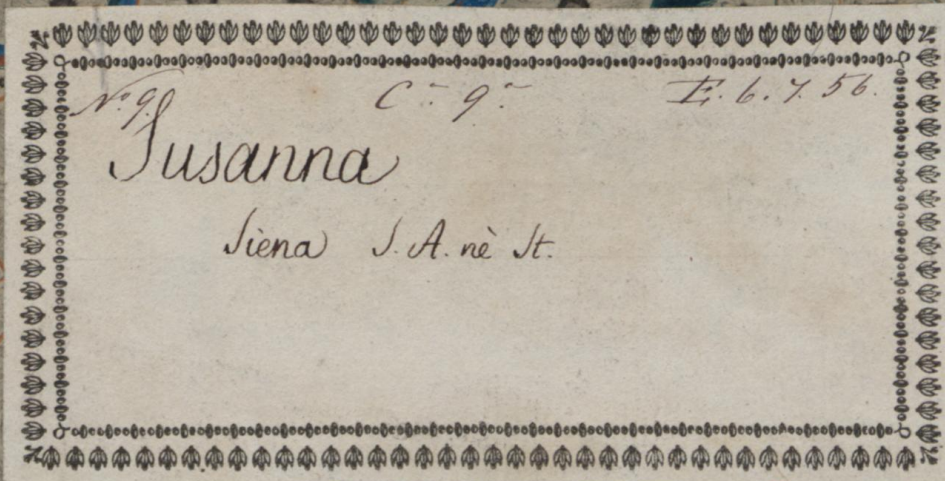 N.o 9. C.a 9.a E. 6. 7. 56.
Susanna
Sièna S. A. nè St.